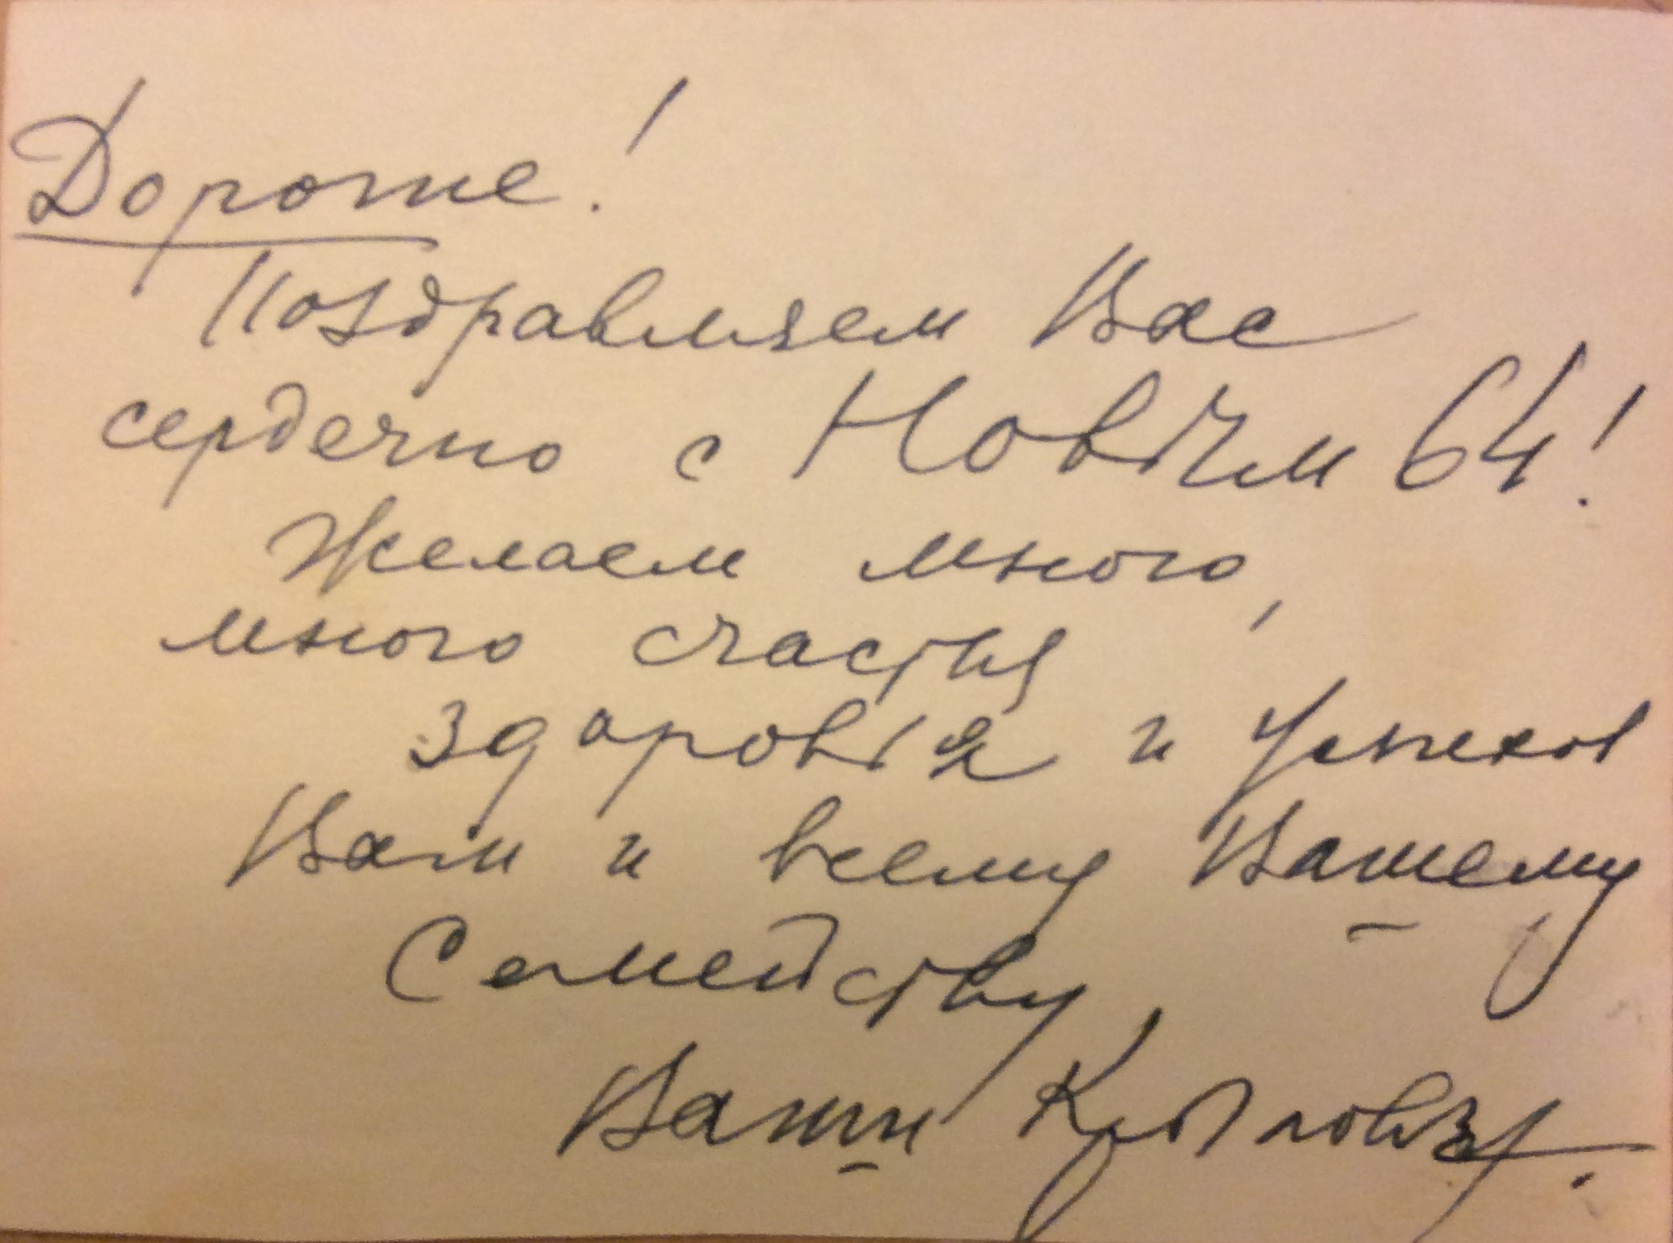 Дорогие!
Поздравляем Вас
сердечно с Новым 64!
Желаем много,
много счастья
здоровья и успехов
Вам и всему Вашему
Семейству
Ваши Крыловы.